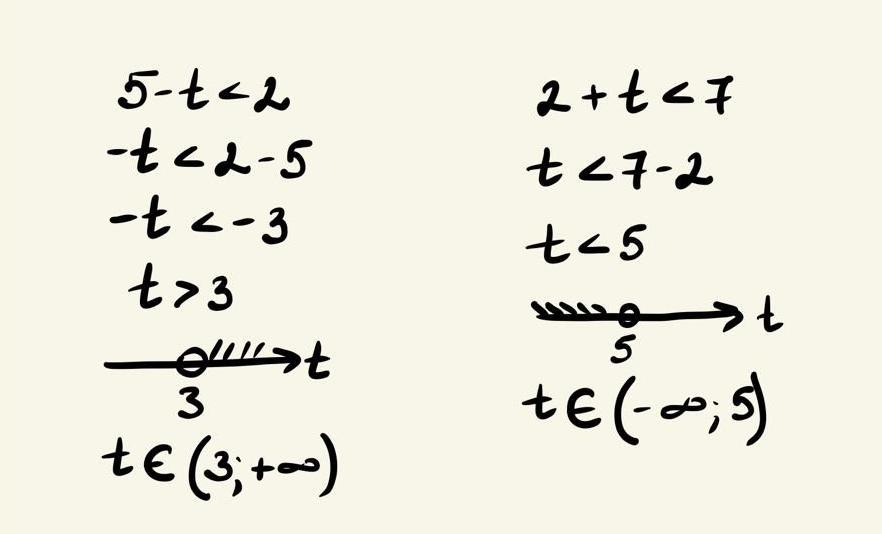 5-t<2
-t<2-5
-t<-3
t>3
t
3
t∈(3;+∞)
2+t<7
t<7-2
t<5
t
5
t∈(-∞;5)